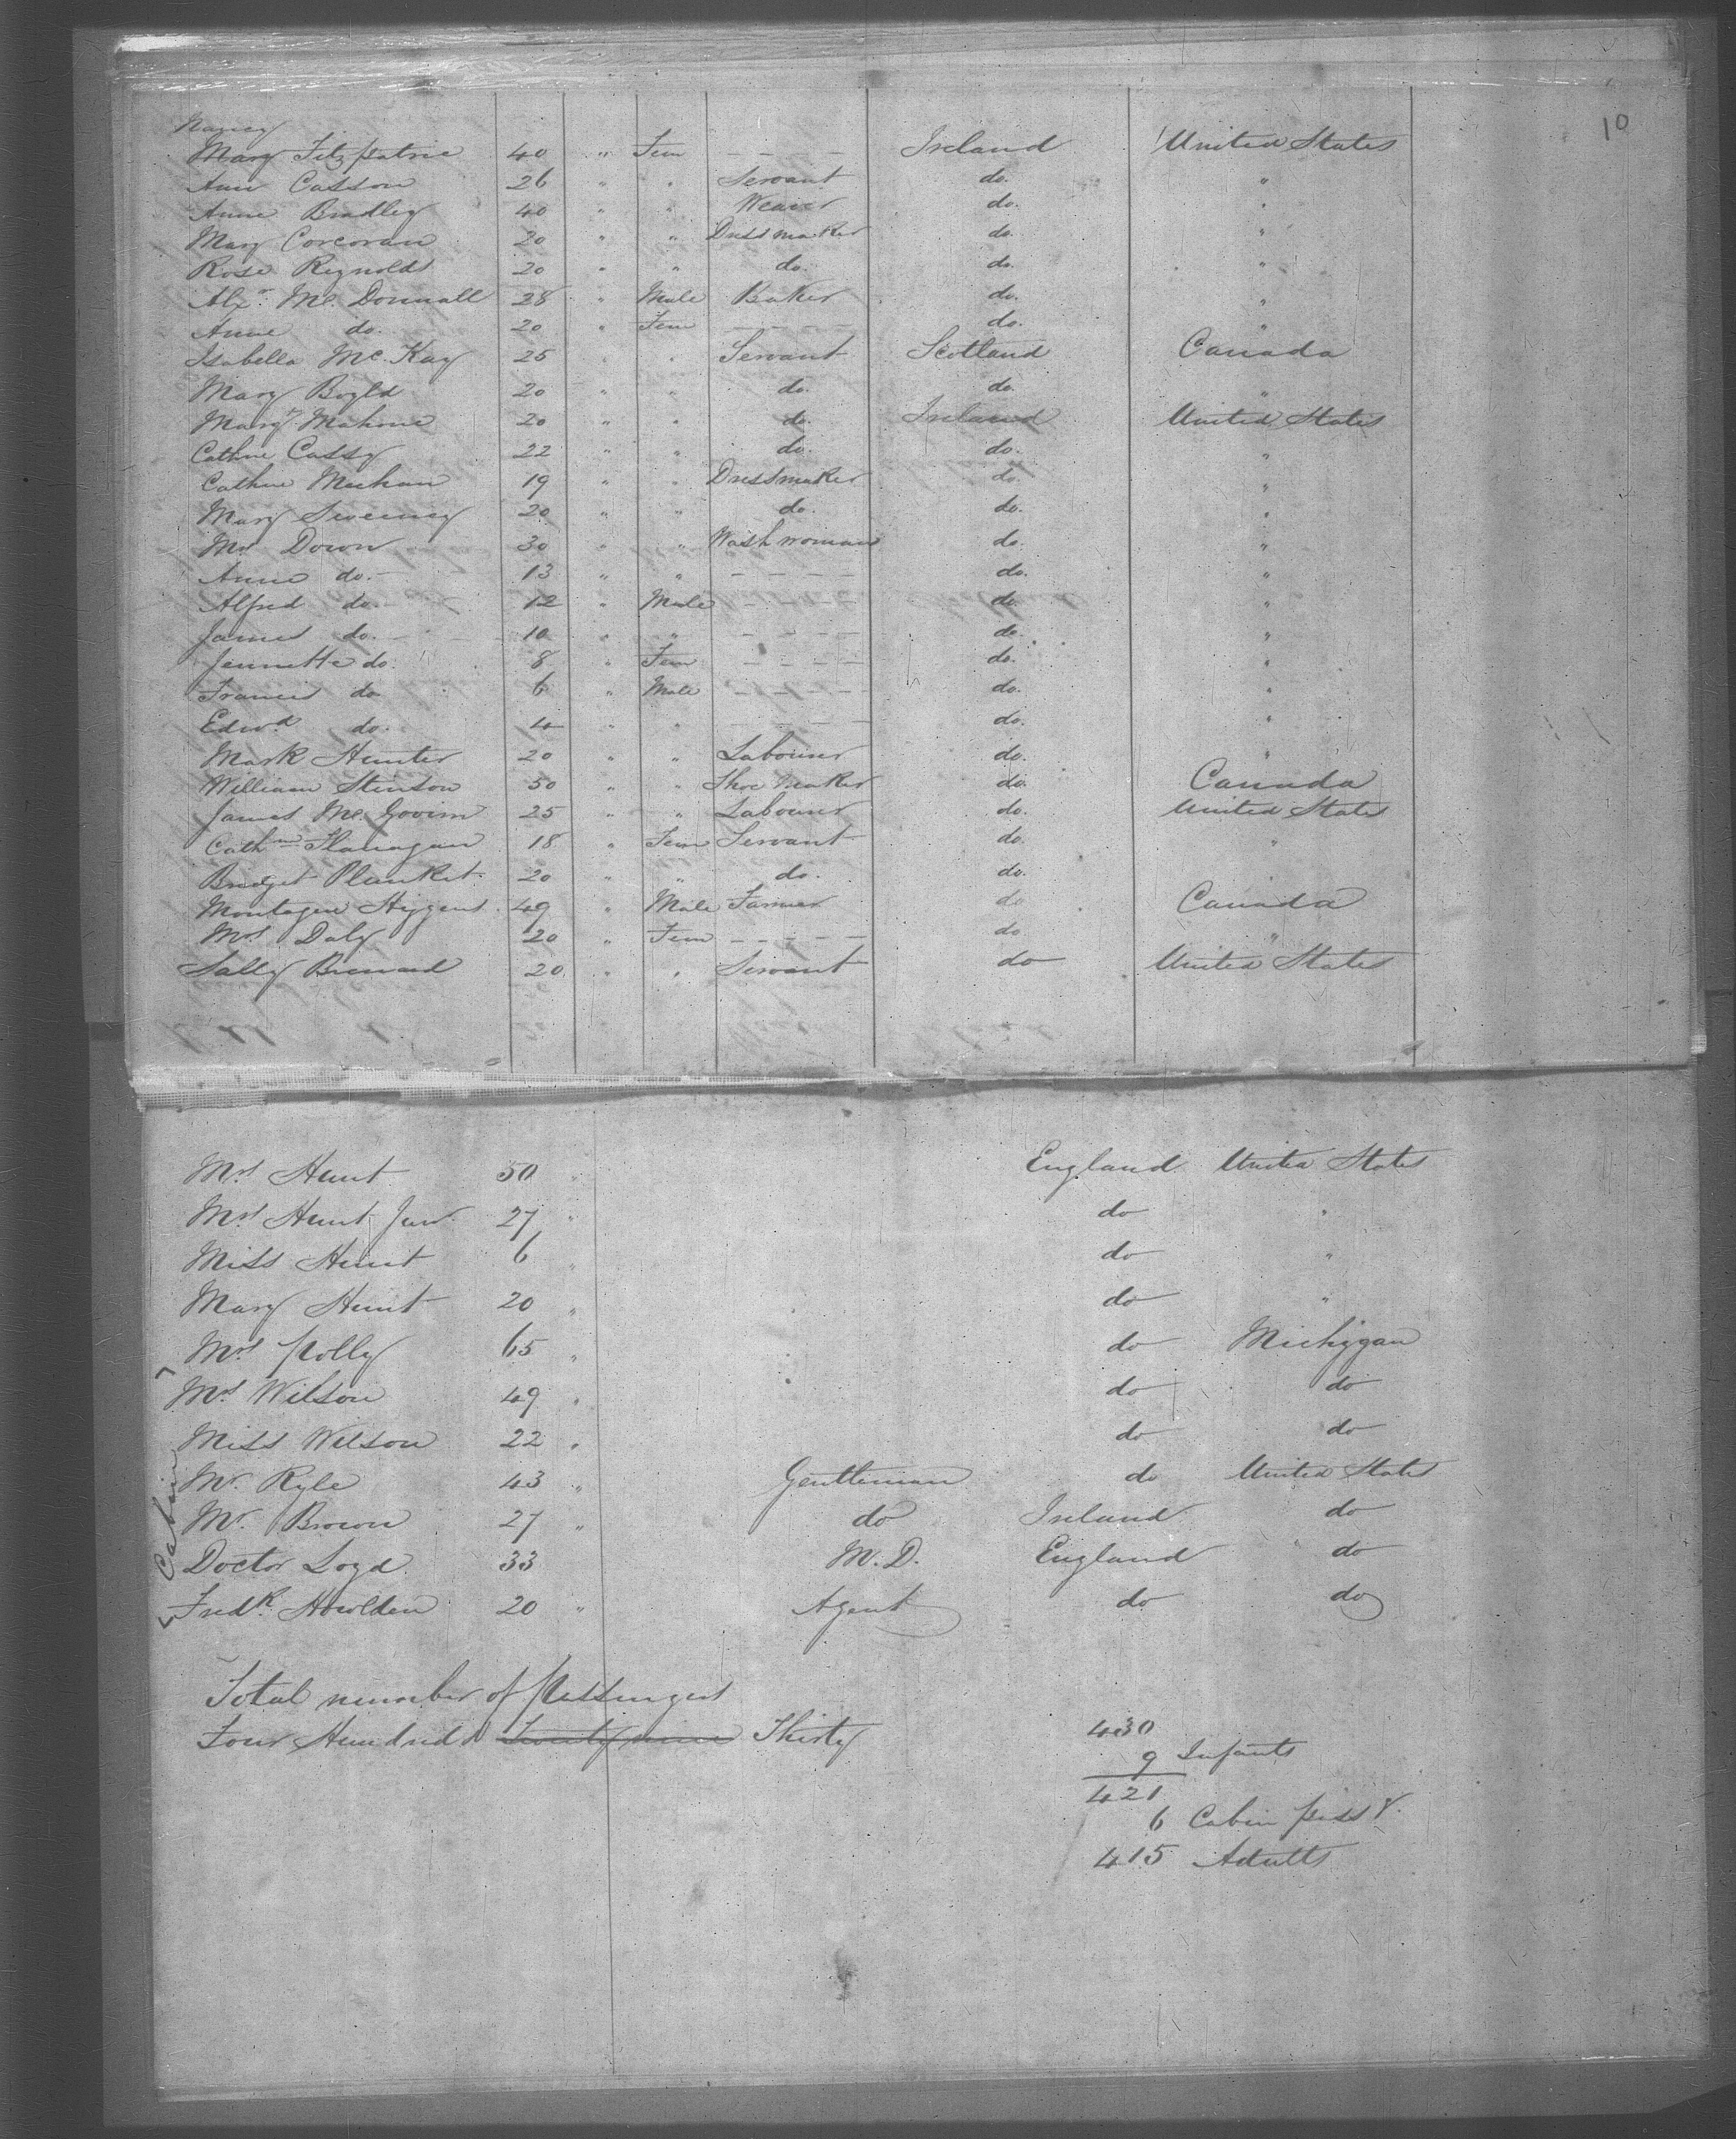 10
Nancy
Mary Fitzpatric 40 " Fem — — — Ireland United States
Ann Casson 26 " " Servant do. "
Anne Bradley 40 " " Weaver do. "
Mary Corcoran 20 " " Dressmaker do. "
Rose Reynolds 20 " " do. do. "
Alxr. Mc. Donnall 28 " Male Baker do. "
Anne do. 20 " Fem — — — do. "
Isabella Mc. Kay 25 " " Servant Scotland Canada
Mary Boyld 20 " " do. do. "
Margt. Mahone 20 " " do. Ireland United States
Cathne Cassy 22 " " do. do. "
Cathne Meehan 19 " " Dressmaker do. "
Mary Sweeney 20 " " do. do. "
Mrs Down 30 " " Wash woman do. "
Anne do. 13 " " — — — — do. "
Alfred do. 12 " Male — — — — do. "
James do. 10 " " — — — — do. "
Jennette do. 8 " Fem — — — — do. "
Francis do 6 " Male — — — — do. "
Edwd do. 4 " " — — — — do. "
Mark Hunter 20 " " Labourer do. "
William Stinson 50 " " Shoe Maker do. Canada
James Mc. Govirn 25 " " Labourer do. United States
Cathne Flanagan 18 " Fem Servant do. "
Bridget Plunket. 20 " " do. do. "
Montague Higgens 49 " Male Farmer do Canada
Mrs Daly 20 " Fem — — — — do "
Sally Brenard 20 " " Servant do United States
Mrs Hunt 50 " England United States
Mrs Hunt Junr. 27 " do "
Miss Hunt 6 " do "
Mary Hunt 20 " do "
Mrs Polly 65 " do Michygan
Mrs Wilson 49 " do do
Miss Wilson 22 " do do
Mr. Ryle 43 " Gentleman do United States
Mr. Brown 27 " do Ireland do
Doctor Loyd 33 M.D. England do
Fredk. Howlden 20 " Agent do do
Cabin
Total number of Passengers
Four Hundred Twenty nine Thirty
430
9 Infants
421
6 Cabin passr.
415 Adults